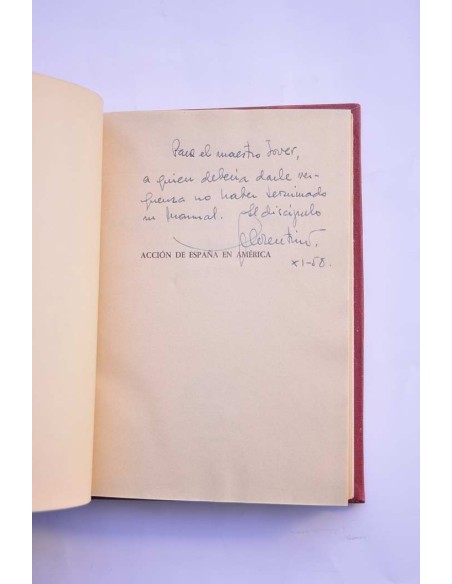 Para el maestro Jover,
a quien debería darle ver-
guenza no haber terminado
su manual. El discípulo
Florentino,
XI-58.
ACCIÓN DE ESPAÑA EN AMÉRICA